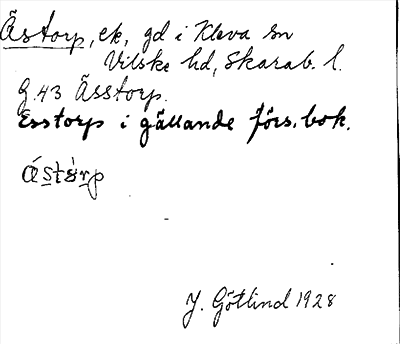 Ästorp, ek, gd i Kleva sn
Vilske hd, Skarab. l.
g. 43 Ässtorp.
Esstorp i gällande förs. bok.
J. Götlind 1928